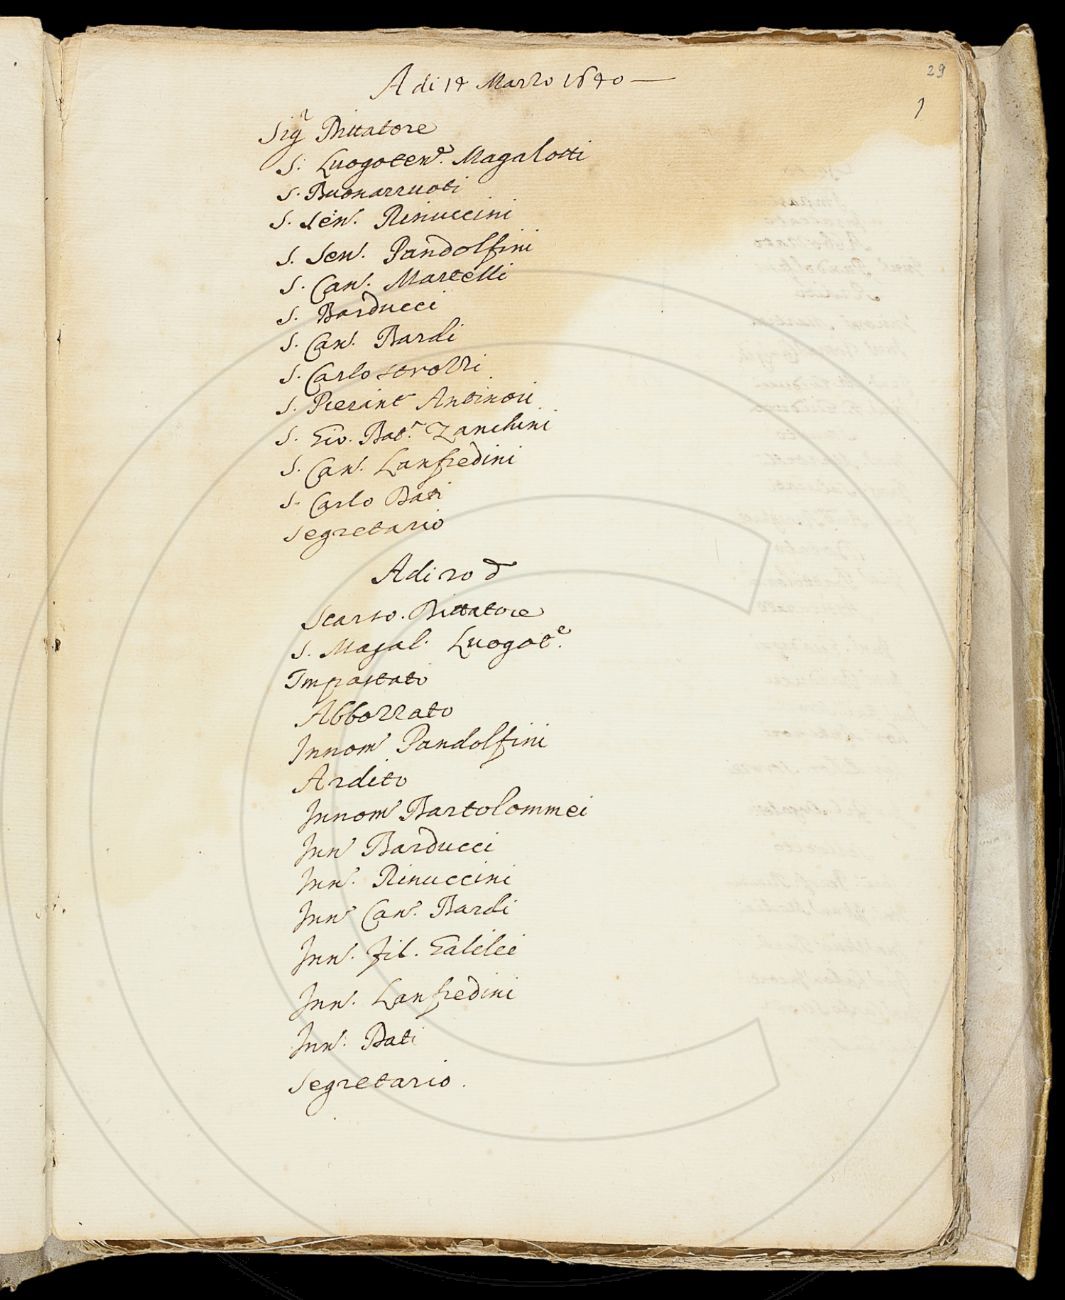 29
1
A di 14 Marzo 1640
Sigr Dittatore
S. Luogoten.e Magalotti
S. Buonarruoti
S. Sen. Rinuccini
S. Sen. Pandolfini
S. Can. Martelli
S. Barducci
S. Can. Bardi
S. Carlo Strozzi
S. Pierant. Antinori
S. Gio. Bat.a Zanchini
S. Can. Lanfredini
S. Carlo Dati
Segretario
A di 20 d
Scarso. Dittatore
S. Magal. Luogot.e
Impastato
Abbozzato
Innom. Pandolfini
Ardito
Innom. Bartolommei
Inn. Barducci
Inn. Rinuccini
Inn. Can. Bardi
Inn. Fil. Galilei
Inn. Lanfredini
Inn. Dati
Segretario.